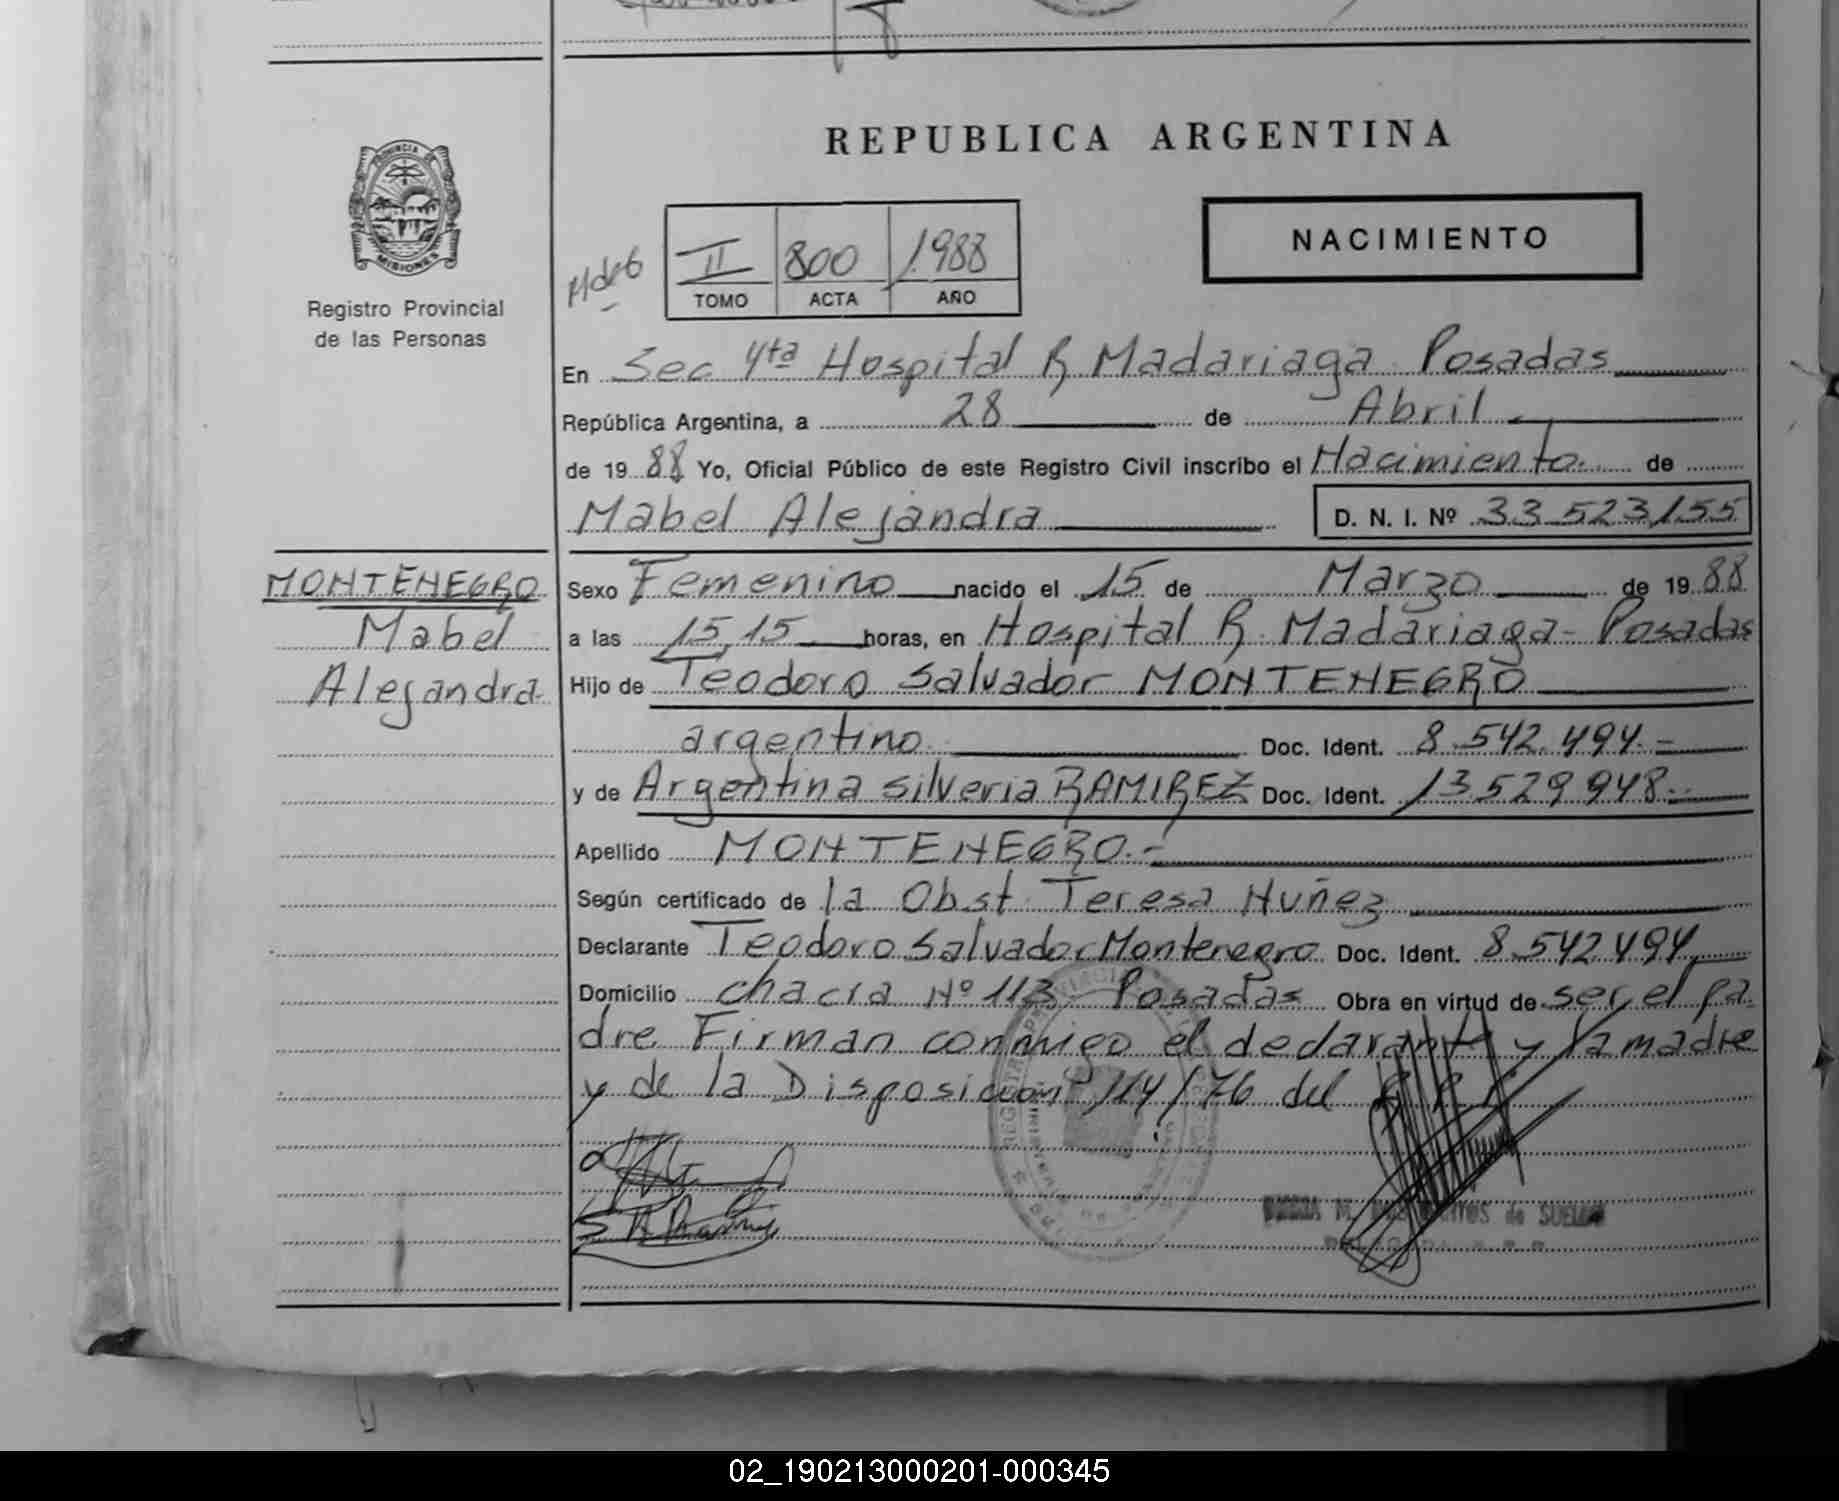 REPUBLICA ARGENTINA
PROVINCIA DE
MISIONES
Registro Provincial
de las Personas
NACIMIENTO
II 800 1988
TOMO ACTA AÑO
En Sec 4ta Hospital R Madariaga Posadas
República Argentina, a 28 de Abril
de 19 88 Yo, Oficial Público de este Registro Civil inscribo el Nacimiento de
Mabel Alejandra D. N. I. Nº 33 523 155
MONTENEGRO
Mabel
Alejandra
Sexo Femenino nacido el 15 de Marzo de 19 88
a las 15,15 horas, en Hospital R. Madariaga - Posadas
Hijo de Teodoro Salvador MONTENEGRO
argentino Doc. Ident. 8.542.494.-
y de Argentina Silveria RAMIREZ Doc. Ident. 13.529.948.-
Apellido MONTENEGRO.-
Según certificado de la Obst. Teresa Nuñez
Declarante Teodoro Salvador Montenegro Doc. Ident. 8.542.494
Domicilio chacra Nº 113 Posadas Obra en virtud de ser el pa-
dre Firman conmigo el declarante y la madre
y de la Disposicion 114/76 del
de SUELDO
02_190213000201-000345